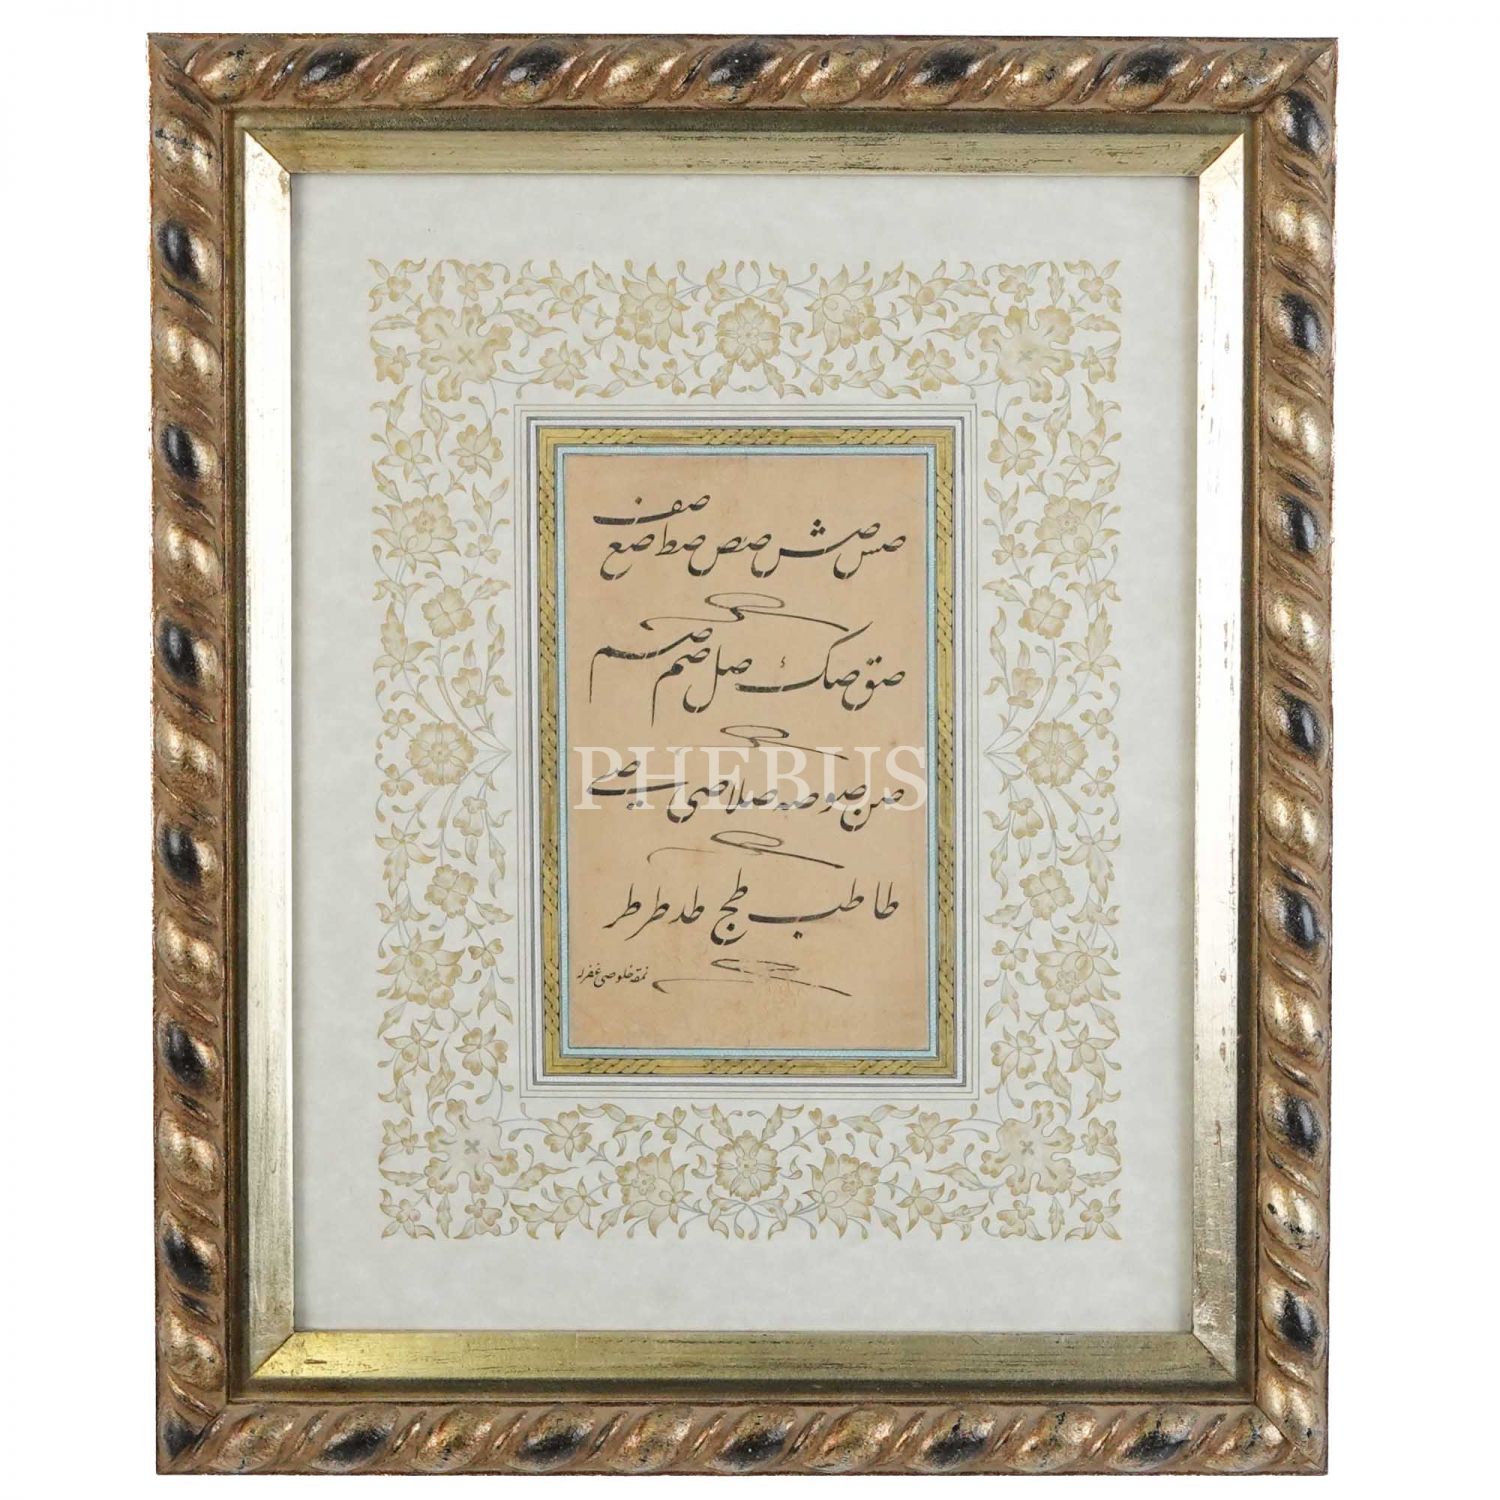 صس صش صص صط صع صف
صق صك صل صم صم
صن صو صه صلا صى صے
طا طب طج طد طر طر
نمقه خلوصی غفر له
PHEBUS